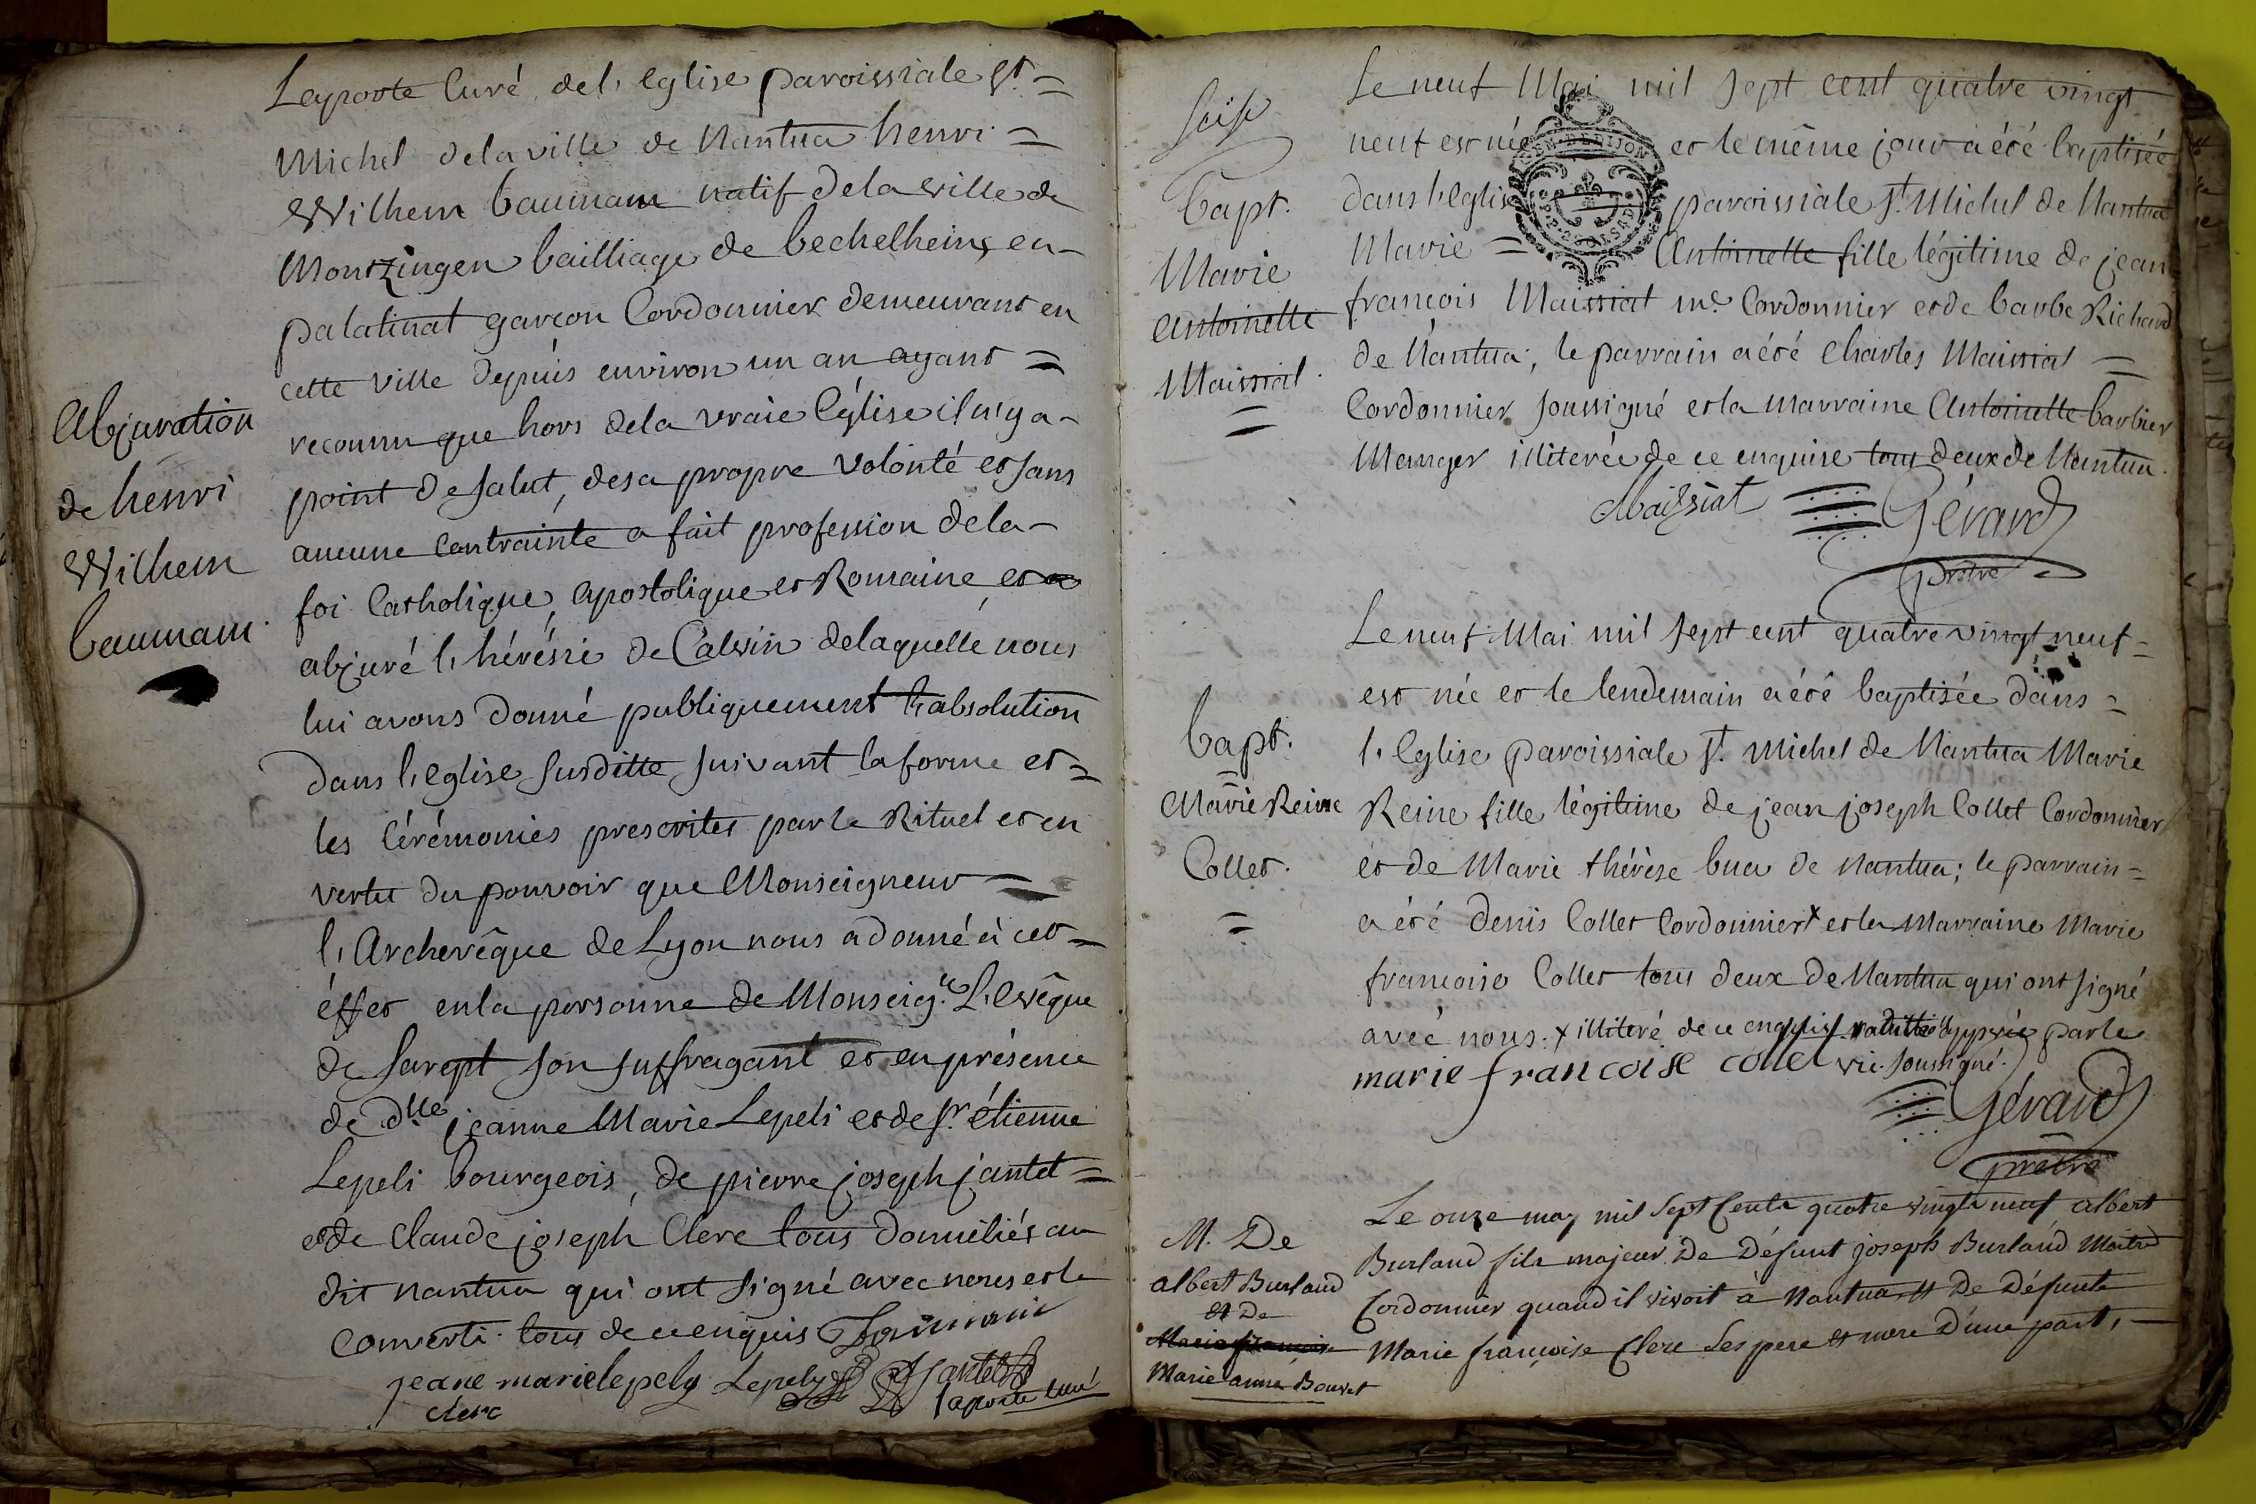 Laporte Curé de l'eglise paroissiale St =
Michel de la ville de Nantua henri =
Wilhem baumann natif de la ville de
Montzingen bailliage de bechelheim en -
palatinat garçon Cordonnier demeurant en
cette ville depuis environ un an ayant =
reconnu que hors de la vraie Eglise il n'y a -
point de salut, de sa propre volonté et sans
aucune contrainte a fait profession de la -
foi Catholique, apostolique et Romaine, et a
abjuré l'hérésie de Calvin de laquelle nous
lui avons donné publiquement l'absolution
dans l'eglise susditte suivant la forme et =
les Cérémonies prescrites par le Rituel et en
vertu du pouvoir que Monseigneur =
l'Archevêque de Lyon nous a donné à cet =
éffet en la personne de Monseigr L'Evêque
de Sarept son suffragant et en présence
de dlle jeanne Marie Lepeli et de Sr étienne
Lepeli bourgeois, de pierre joseph jantet =
et de Claude joseph Clerc tous domiciliés au
dit nantua qui ont signé avec nous et le
converti tous de ce enquis
jeane marie lepely Lepely Jantet
clerc laporte curé
Abjuration
de henri
Wilhem
baumann.
Seise
bapt.
Marie
Antoinette
Maissiat.
=
Le neuf Mai mil sept cent quatre vingt
neuf est née et le même jour a été baptisée
dans l'eglise paroissiale St Michel de Nantua
Marie = Antoinette fille légitime de jean
françois Maissiat me Cordonnier et de barbe Richard
de Nantua; le parrain a été Charles Maissiat =
Cordonnier soussigné et la marraine Antoinette barbier
Menager illiterée de ce enquise tous deux de Nantua.
Maissiat Gérard
prêtre
bapt.
=
Marie Reine
Collet.
=
Le neuf Mai mil sept cent quatre vingt neuf =
est née et le lendemain a été baptisée dans =
l'Eglise paroissiale St. Michel de Nantua Marie
Reine fille légitime de jean joseph Collet Cordonnier
et de Marie thérèse bua de Nantua; le parrain =
a été Denis Collet Cordonnier x et la Marraine Marie
francoise Collet tous deux de Nantua qui ont signé
avec nous. x illiteré de ce enquis par le
marie francoise collet vic. soussigné.
Gérard
prêtre
M. De
albert Burland
et De
Marie françoise
Marie anne Bouvet
Le onze may mil Sept Cents quatre vingts neuf albert
Burland fils majeur De Défunt joseph Burland Maitre
Cordonnier quand il vivoit à Nantua et De Défunte
Marie françoise Clerc ses pere et mere D'une part, -